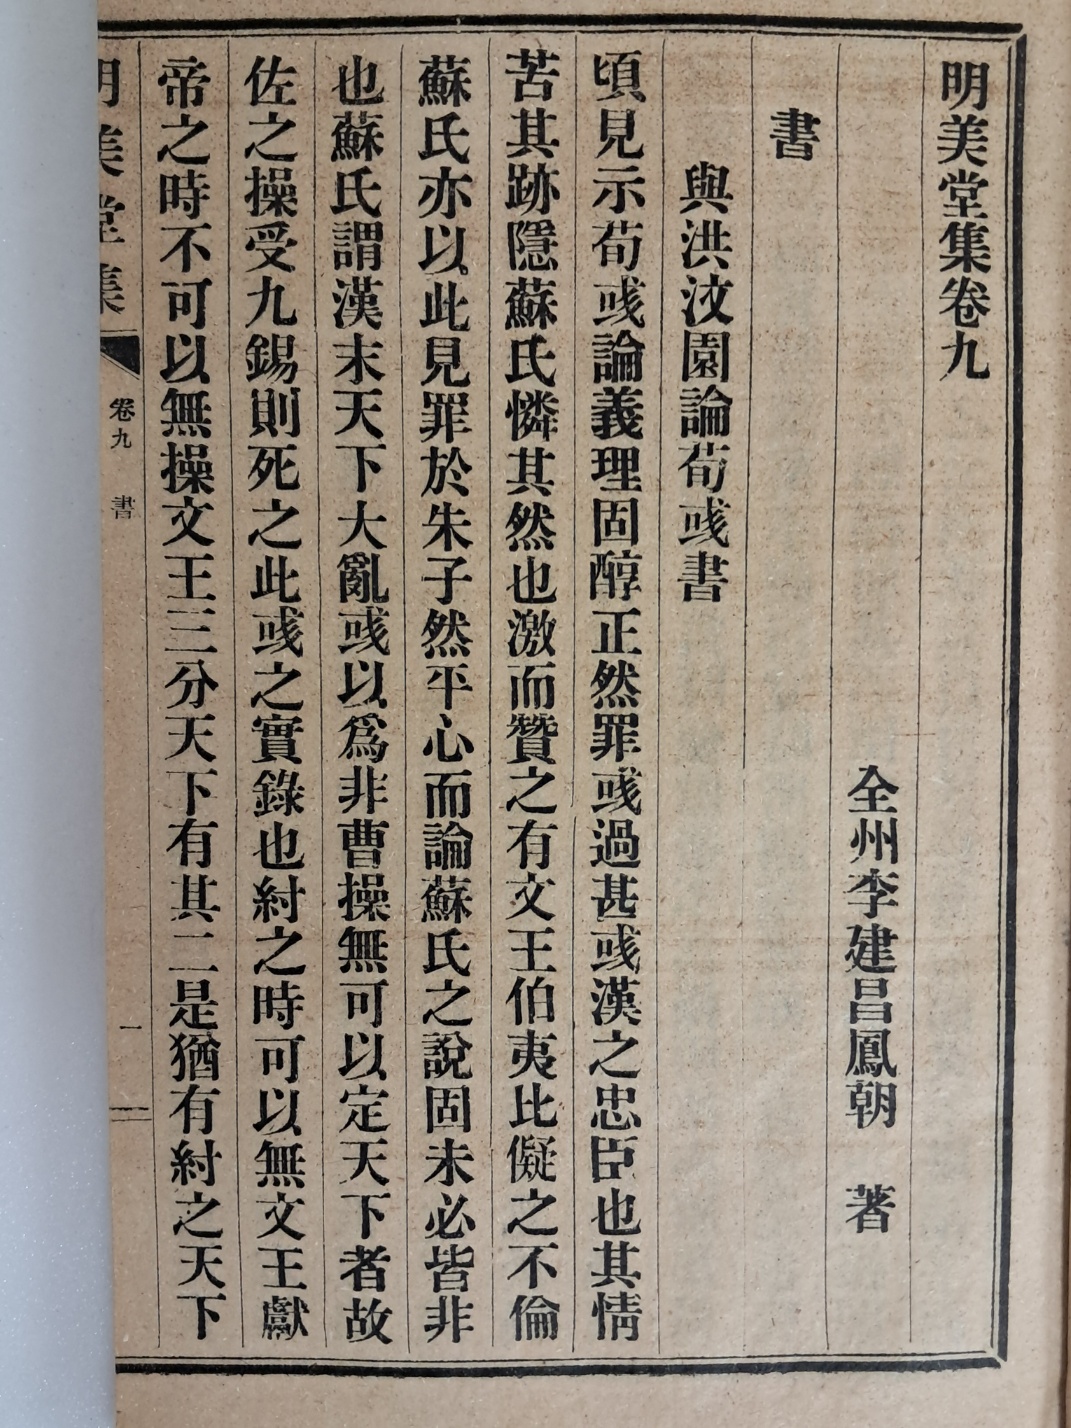 明美堂集卷九
全州李建昌鳳朝　著
書
與洪汶園論荀彧書
頃見示荀彧論義理固醇正然罪彧過甚彧漢之忠臣也其情
苦其跡隱蘇氏憐其然也激而贊之有文王伯夷比儗之不倫
蘇氏亦以此見罪於朱子然平心而論蘇氏之說固未必皆非
也蘇氏謂漢末天下大亂彧以爲非曹操無可以定天下者故
佐之操受九錫則死之此彧之實錄也紂之時可以無文王獻
帝之時不可以無操文王三分天下有其二是猶有紂之天下
明美堂集
卷九
書
一